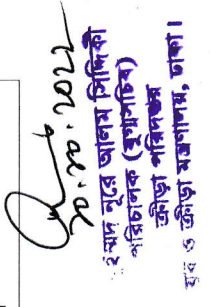 ২০.১০.২০২২
সৈয়দ নূরে আলম সিদ্দিকী
পরিচালক (যুগ্মসচিব)
ক্রীড়া পরিদপ্তর
যুব ও ক্রীড়া মন্ত্রণালয়, ঢাকা।